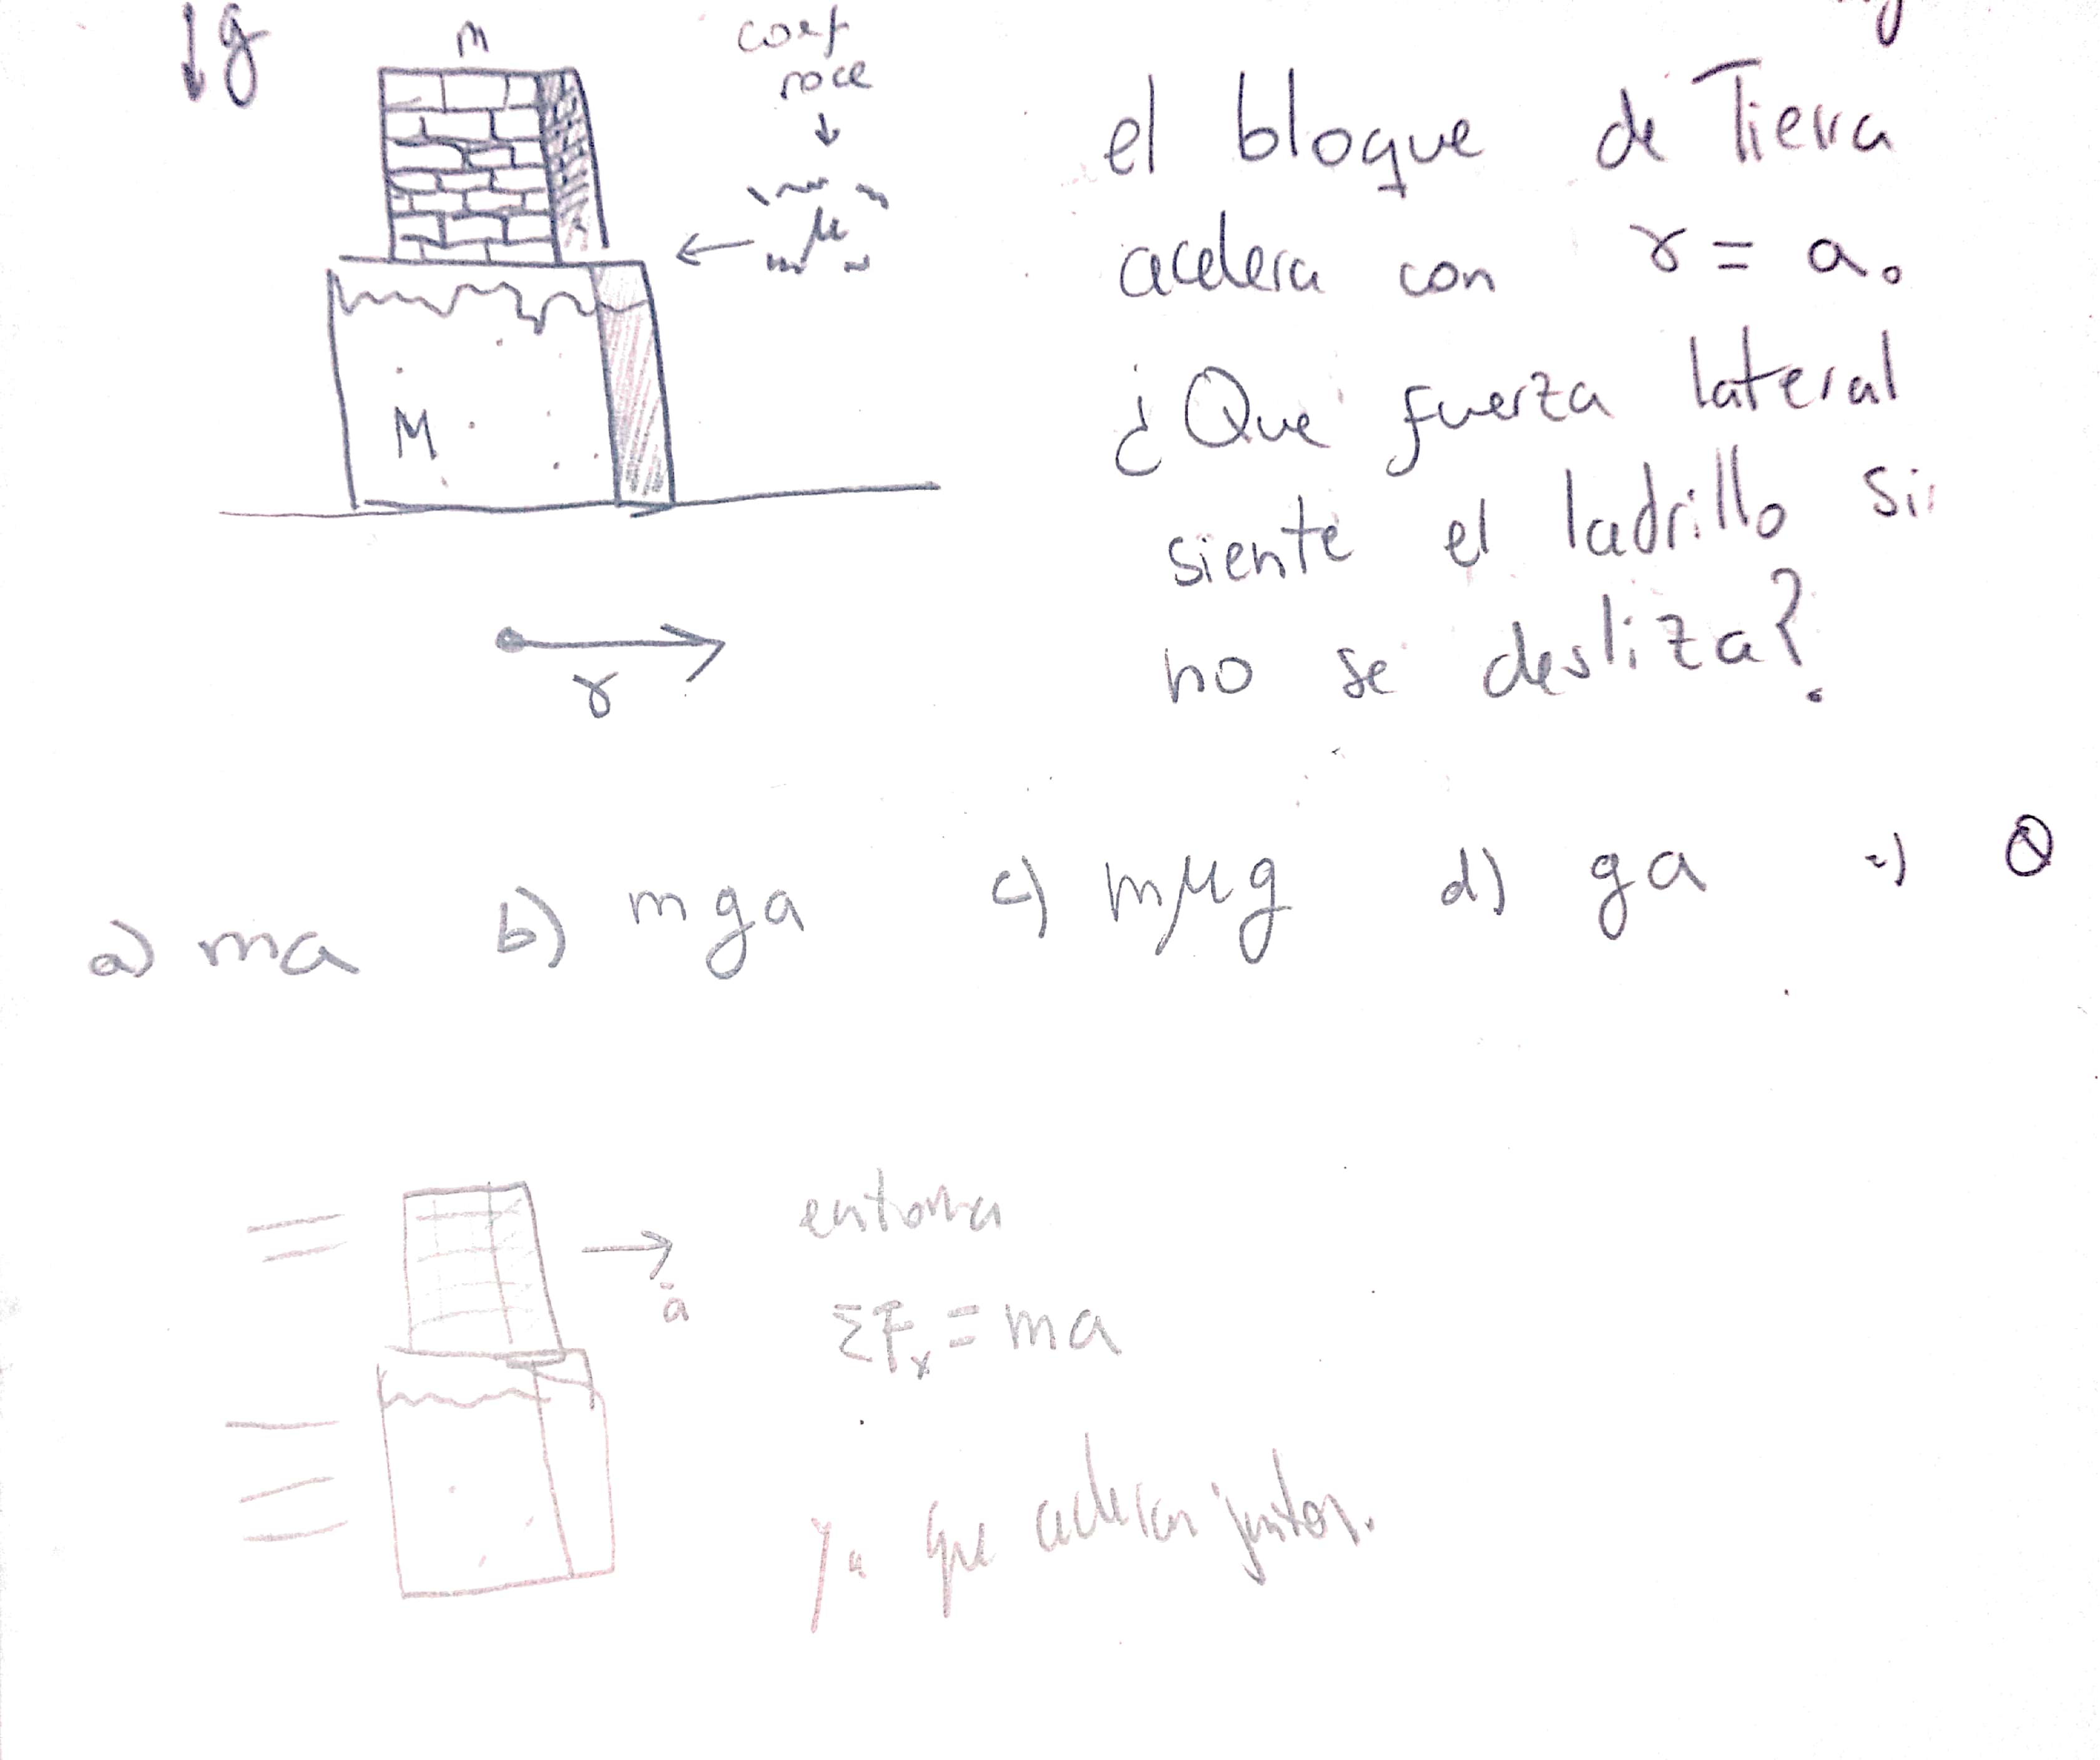 ↓g
m
coef
roce
↓
μ
M
γ
el bloque de Tierra
acelera con γ = a.
¿Que fuerza lateral
siente el ladrillo si
no se desliza?
a) ma b) mga c) mμg d) ga e) 0
a
ΣFx = ma
ya que aceleran juntos.